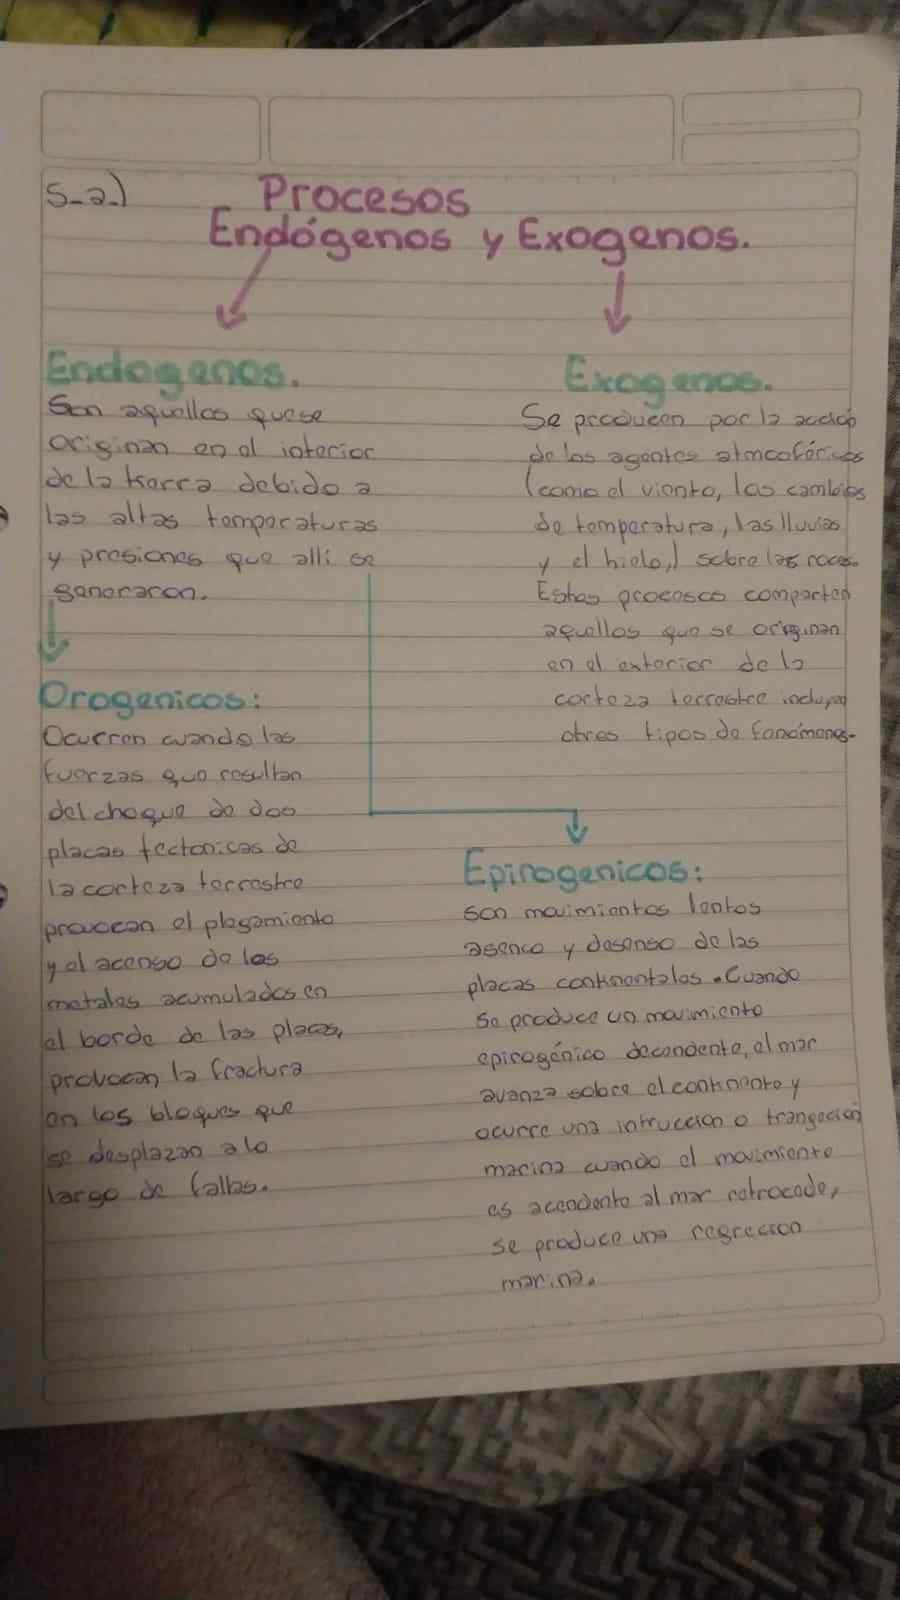 5-a)
Procesos
Endógenos y Exogenos.
Endogenos.
Son aquellos que se
originan en el interior
de la tierra debido a
las altas temperaturas
y presiones que alli se
generaron.
Orogenicos:
Ocurren cuando las
fuerzas que resultan
del choque de dos
placas tectonicas de
la corteza terrestre
provocan el plegamiento
y el acenso de los
metales acumulados en
el borde de las placas,
provocan la fractura
en los bloques que
se desplazan a lo
largo de fallas.
Exogenos.
Se producen por la acción
de los agentes atmosféricos
(como el viento, los cambios
de temperatura, las lluvias
y el hielo,) sobre las rocas.
Estos procesos comparten
aquellos que se originan
en el exterior de la
corteza terrestre incluyen
otros tipos de fenómenos.
Epirogenicos:
son movimientos lentos
asenco y desenso de las
placas continentales. Cuando
se produce un movimiento
epirogénico decendente, el mar
avanza sobre el continente y
ocurre una intruccion o
marina cuando el movimiento
es accendente al mar retrocede,
se produce una regrecion
marina.